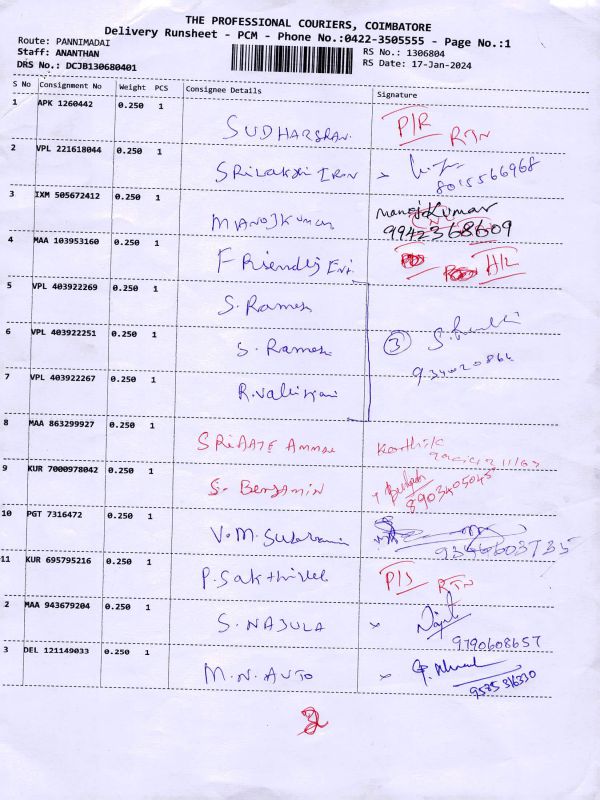 THE PROFESSIONAL COURIERS, COIMBATORE
Delivery Runsheet - PCM - Phone No.:0422-3505555 - Page No.:1
Route: PANNIMADAI
Staff: ANANTHAN
DRS No.: DCJB130680401
RS No.: 1306804
RS Date: 17-Jan-2024
S No Consignment No Weight PCS Consignee Details Signature
1 APK 1260442 0.250 1 SUDHARSHAN P/R RTN
2 VPL 221618044 0.250 1 SRILAKSHI IRON 8015566968
3 IXM 505672412 0.250 1 MANOJKUMAR manojkumar
9942368609
4 MAA 103953160 0.250 1 FRIENDLY Ent. A/R
5 VPL 403922269 0.250 1 S. Ramesh
6 VPL 403922251 0.250 1 S. Ramesh 3
7 VPL 403922267 0.250 1
8 MAA 863299927 0.250 1 Karthik
9 KUR 7000978042 0.250 1 S. BENJAMIN 8903405045
10 PGT 7316472 0.250 1 V.M. 9346603735
11 KUR 695795216 0.250 1 P. Sakthivel RTN
2 MAA 943679204 0.250 1 S. NAJULA × 9790608657
3 DEL 121149033 0.250 1 M.N. AUTO × 9585316330
2